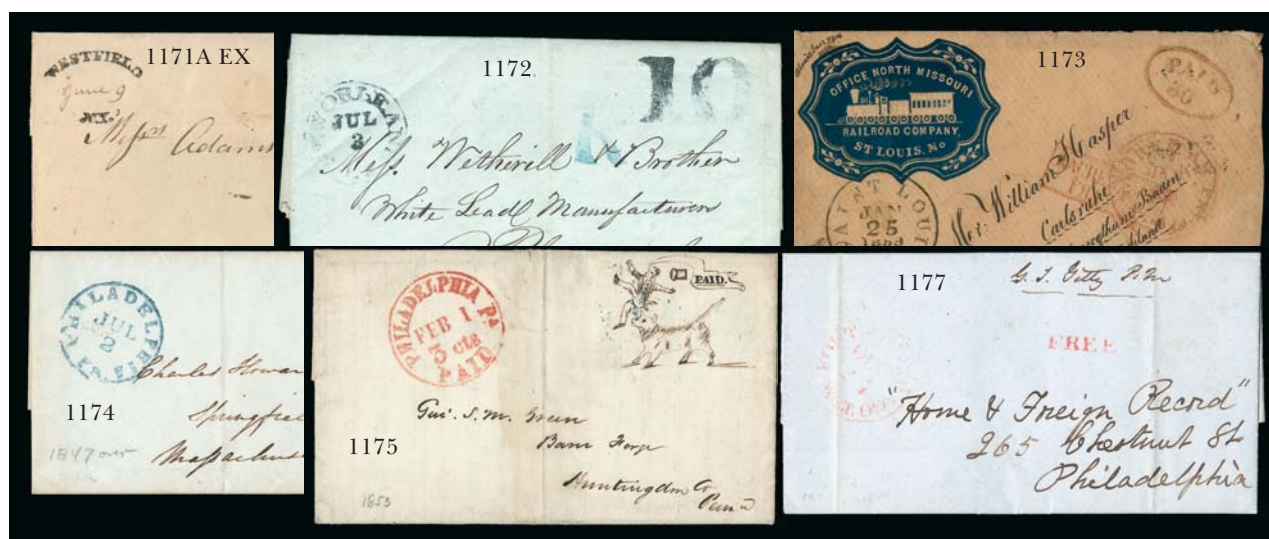 1171A EX
WESTFIELD
June 9
N.Y.
Messrs Adams
1172
10
JUL
3
Messrs. Witherill & Brother
White Lead Manufacturers
1173
OFFICE NORTH MISSOURI
RAILROAD COMPANY,
ST LOUIS, Mo
PAID
30
SAINT LOUI
JAN
25
Mr. William Hasper
Carlsruhe
Baden
1174
PHILADELPHI
JUL
2
Charles Howar
Springfiel
Massachus
1847 over
1175
PHILADELPHIA Pa
FEB 1
3 cts
PAID
PAID.
S. M. Green
Barre Forge
Huntingdon Co
Penna
1853
1177
G. T. P.M
FREE
"Home & Foreign Record"
265 Chestnut St
Philadelphia